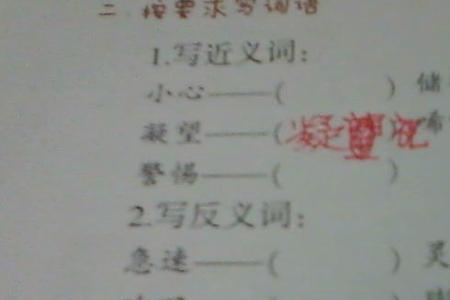 二 按要求写词语
1.写近义词：
小心——（ ） 储
凝望——（凝 视） 希
警惕——（ ）
2.写反义词：
急速——（ ） 灵